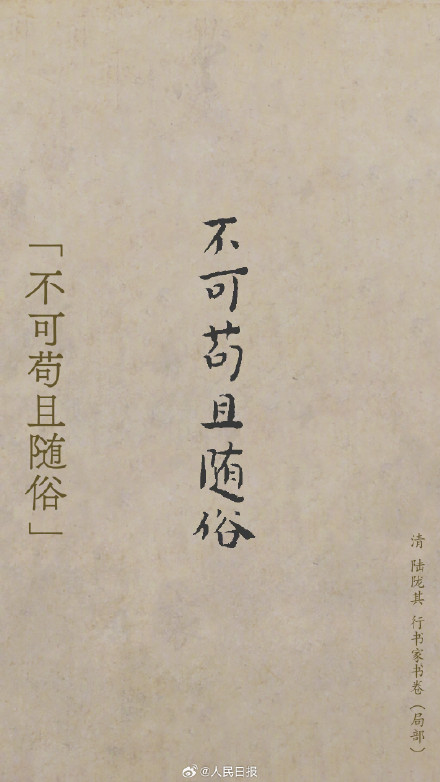 「不可苟且随俗」
不可苟且随俗
清 陆陇其 行书家书卷（局部）
@人民日报